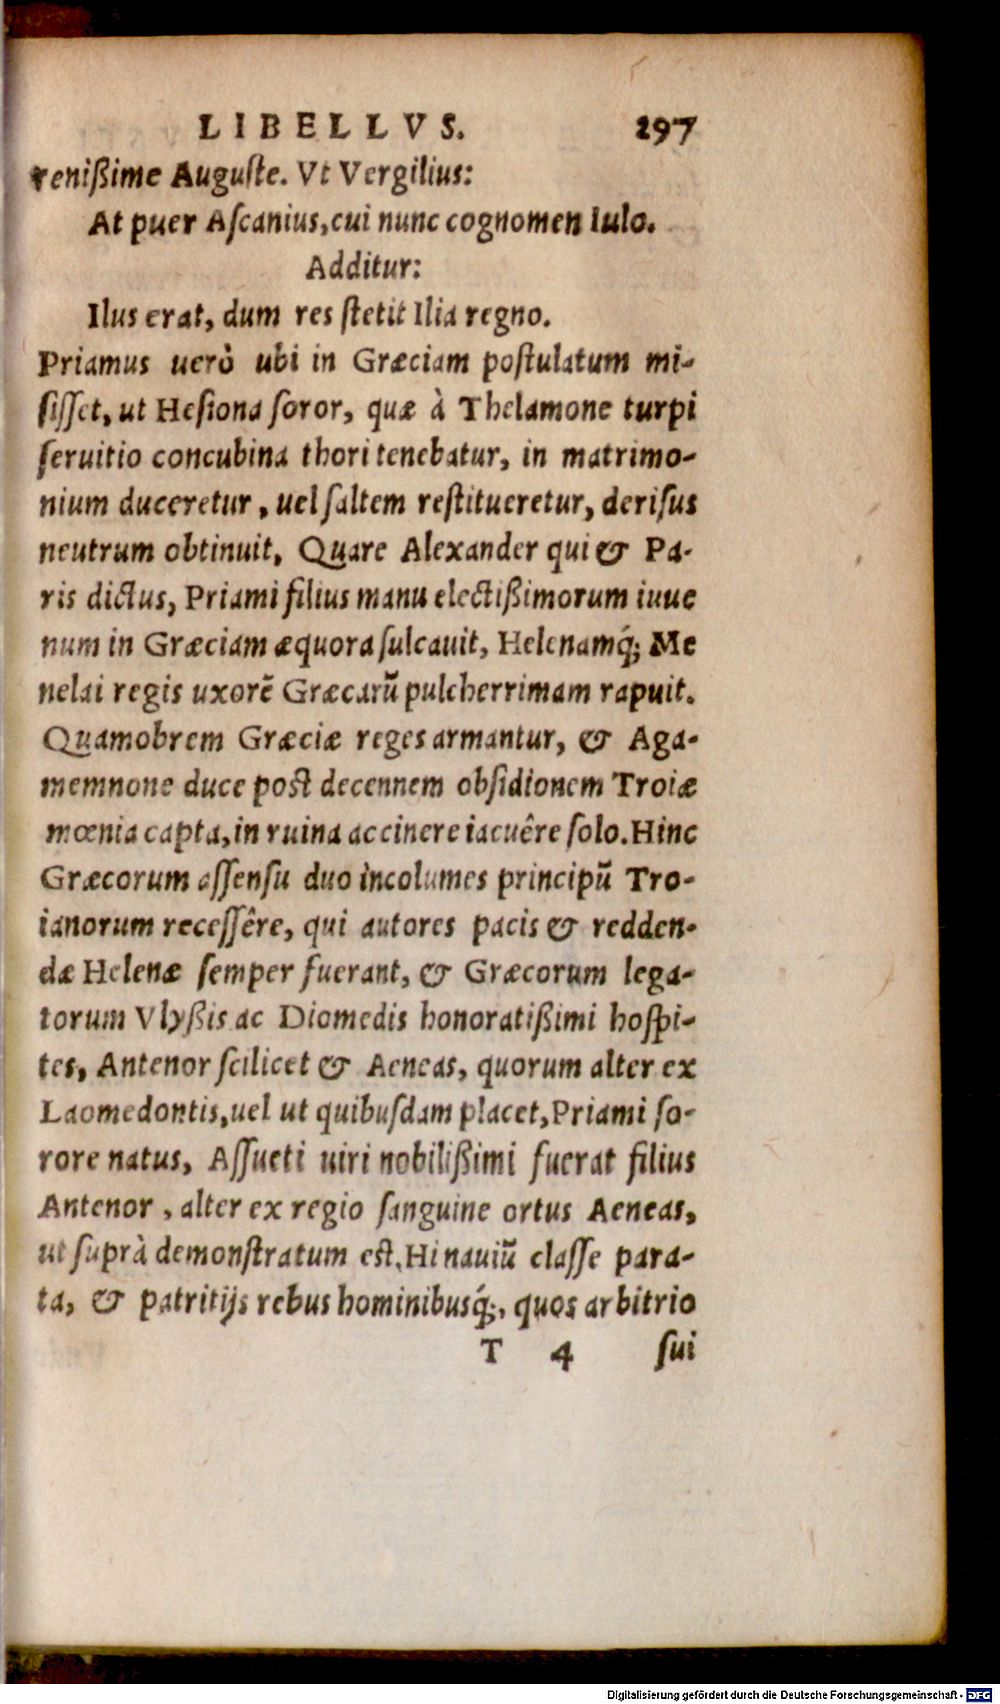 LIBELLVS. 297
renißime Auguſte. Vt Vergilius:
At puer Aſcanius, cui nunc cognomen Iulo.
Additur:
Ilus erat, dum res ſtetit Ilia regno.
Priamus uerò ubi in Græciam poſtulatum mi-
ſiſſet, ut Heſiona ſoror, quæ à Thelamone turpi
ſeruitio concubina thori tenebatur, in matrimo-
nium duceretur, uel ſaltem reſtitueretur, deriſus
neutrum obtinuit. Quare Alexander qui & Pa-
ris dictus, Priami filius manu electißimorum iuue
num in Græciam æquora ſulcauit, Helenamq́; Me
nelai regis uxorē Græcarū pulcherrimam rapuit.
Quamobrem Græciæ reges armantur, & Aga-
memnone duce poſt decennem obſidionem Troiæ
mœnia capta, in ruina ac cinere iacuêre ſolo. Hinc
Græcorum aſſenſu duo incolumes principū Tro-
ianorum receſſêre, qui autores pacis & redden-
dæ Helenæ ſemper fuerant, & Græcorum lega-
torum Vlyßis ac Diomedis honoratißimi hoſpi-
tes, Antenor ſcilicet & Aeneas, quorum alter ex
Laomedontis, uel ut quibuſdam placet, Priami ſo-
rore natus, Aſſueti uiri nobilißimi fuerat filius
Antenor, alter ex regio ſanguine ortus Aeneas,
ut ſuprà demonſtratum eſt. Hi nauiū claſſe para-
ta, & patritijs rebus hominibusq́;, quos arbitrio
T 4 ſui
Digitalisierung gefördert durch die Deutsche Forschungsgemeinschaft - DFG